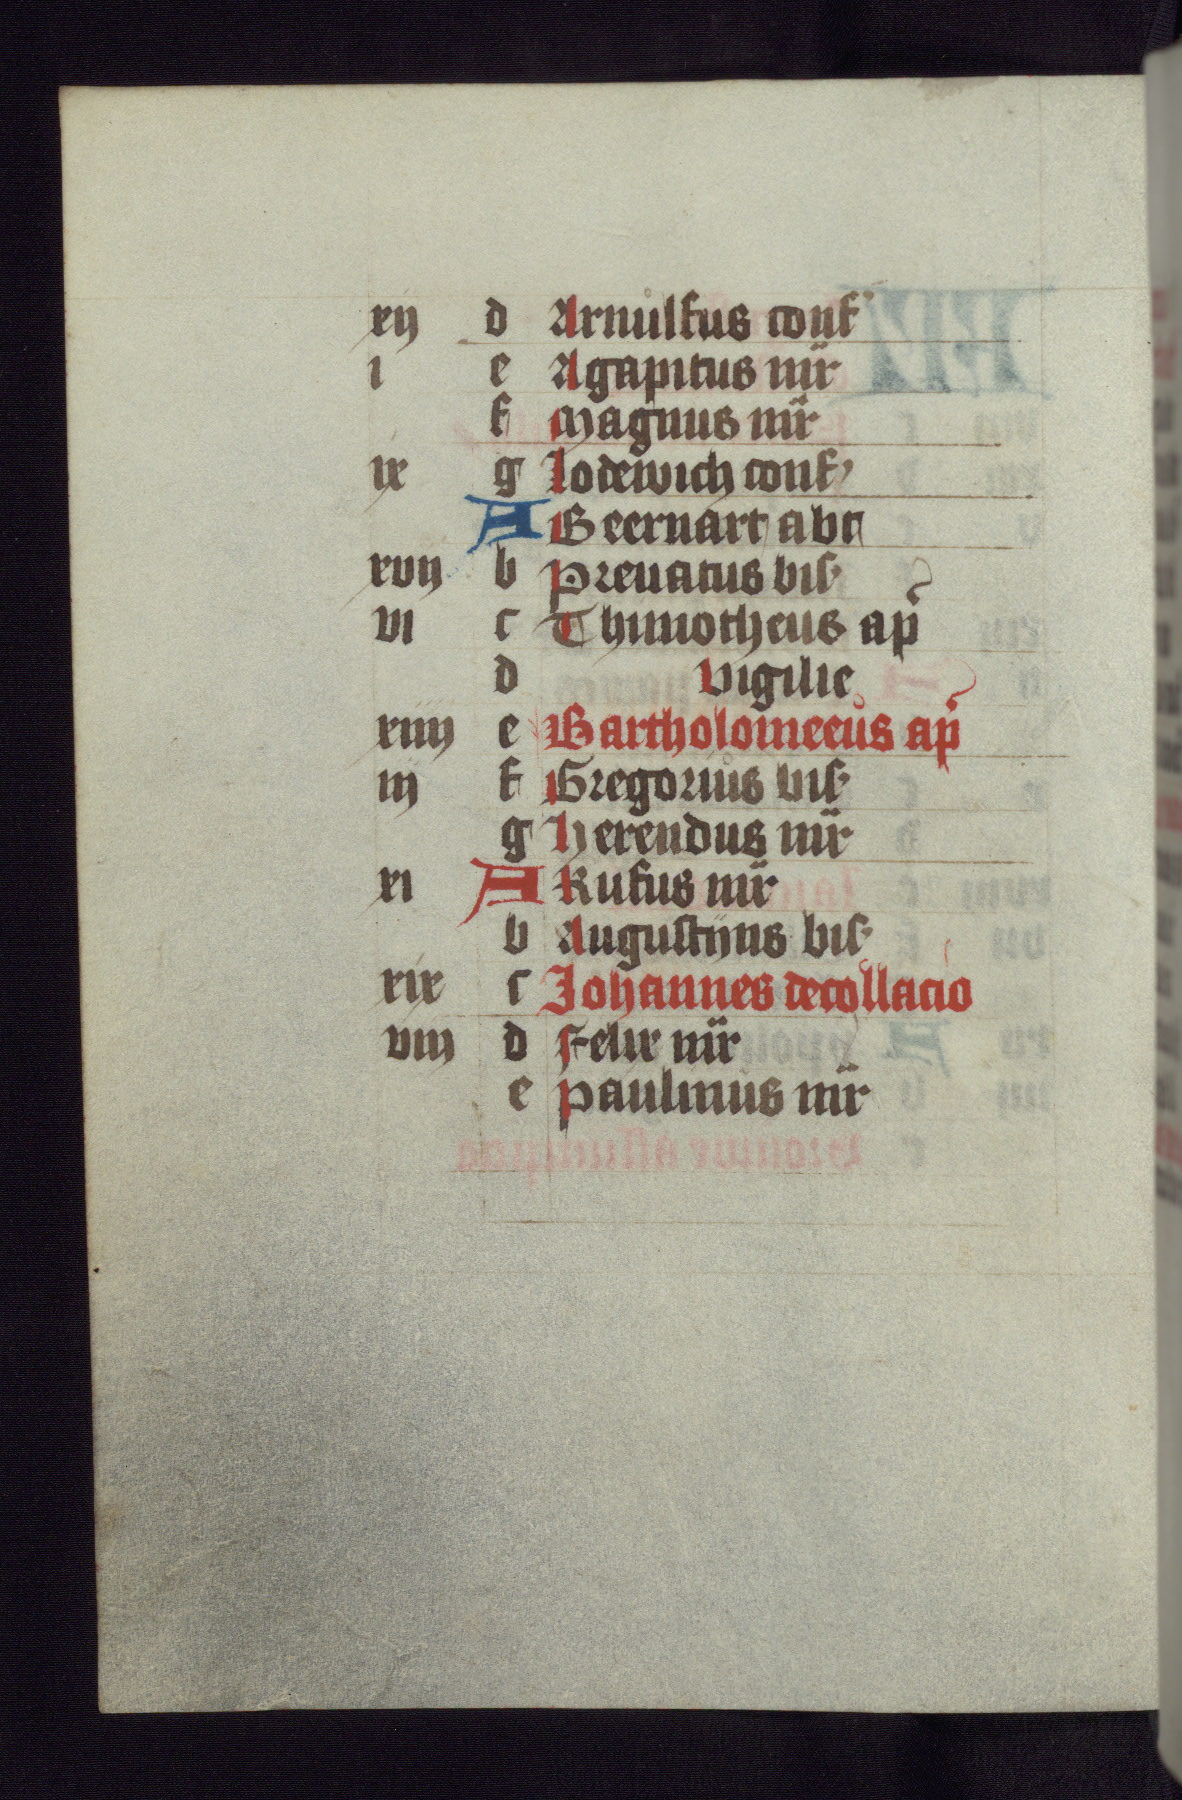 xij d Arnulfus conf
i e Agapitus mr̄
f Magnus mr̄
ix g Lodewich conf
A Beernart abt
xvij b Prenatus bis
vi c Thimotheus ap̄
d Vigilie
xiiij e Bartholomeeus ap̄
iij f Gregorius bis
g Herendus mr̄
xi A Rufus mr̄
b Augustijns bis
xix c Johannes decollacio
viij d Felix mr̄
e Paulinus mr̄